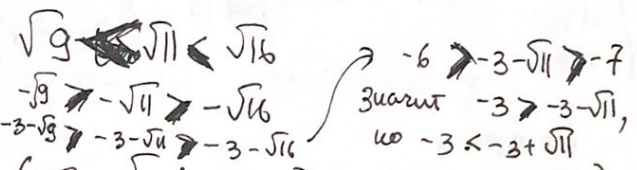 √9 < √11 < √16
-√9 > -√11 > -√16
-3-√9 > -3-√11 > -3-√16
-6 > -3-√11 > -7
Значит -3 > -3-√11,
но -3 < -3+√11